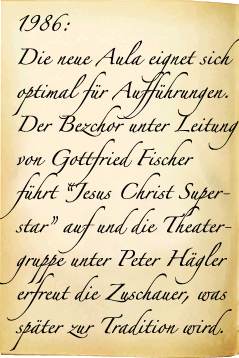 1986:
Die neue Aula eignet sich
optimal für Aufführungen.
Der Bezchor unter Leitung
von Gottfried Fischer
führt "Jesus Christ Super-
star" auf und die Theater-
gruppe unter Peter Hägler
erfreut die Zuschauer, was
später zur Tradition wird.